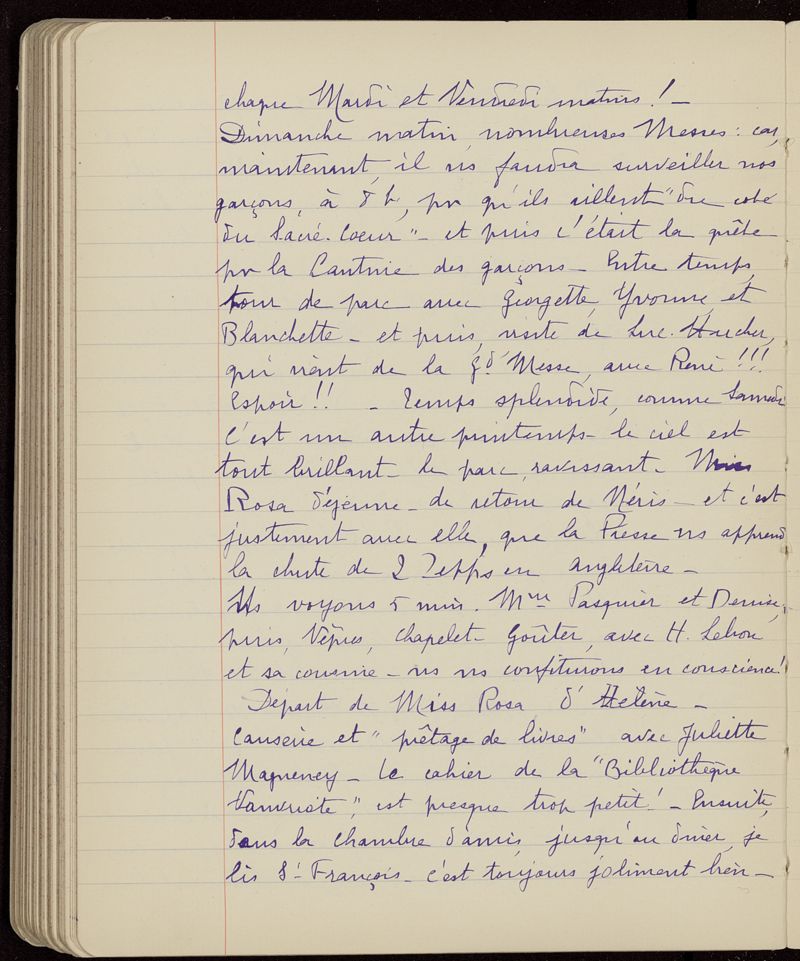 chaque Mardi et Vendredi matins ! _
Dimanche matin, nombreuses Messes : car,
maintenant, il ns faudra surveiller nos
garçons, à 8 h, pr qu'ils aillent "du coté
du Sacré-Coeur" _ et puis c'était la quête
pr la Cantine des garçons _ Entre temps,
tour de parc avec Georgette, Yvonne, et
Blanchette _ et puis, visite de Luc.
qui vient de la Gd Messe, avec René !!!
Espoir !! _ Temps splendide, comme Samedi
C'est un autre printemps _ le ciel est
tout brillant _ le parc, ravissant _ Miss
Rosa déjeune _ de retour de Néris _ et c'est
justement avec elle, que la Presse ns apprend
la chute de 2 Zepps en Angleterre _
Ns voyons 5 min. Mme Pasquier et Denise,
puis, Vêpres, chapelet _ Goûter, avec H. Lebou
et sa cousine _ ns ns confiturons en conscience !
Départ de Miss Rosa, d'Hélène _
Causerie et "prêtage de livres" avec Juliette
Magneney _ Le cahier de la "Bibliothèque
est presque trop petit ! _ Ensuite,
dans la chambre d'amis, jusqu'au dîner, je
lis St François _ c'est toujours joliment bien _